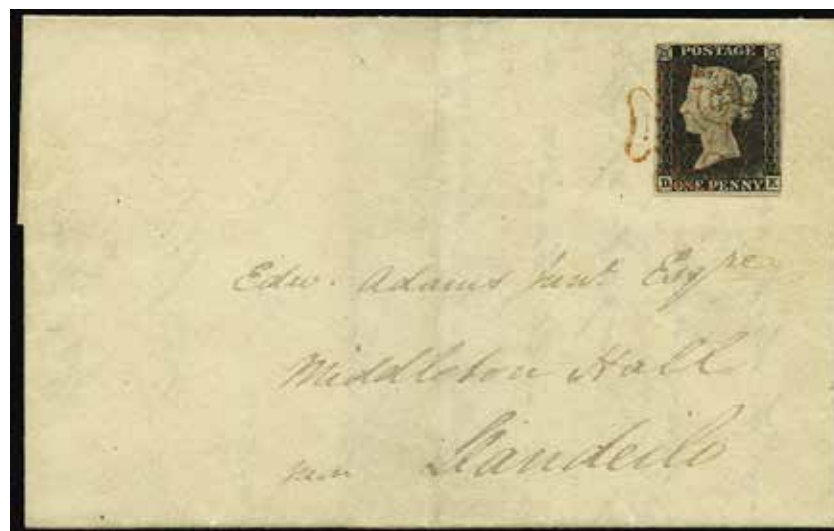 POSTAGE
D ONE PENNY K
Edw. Adams Junr Esqre
Middleton Hall
near Llandeilo